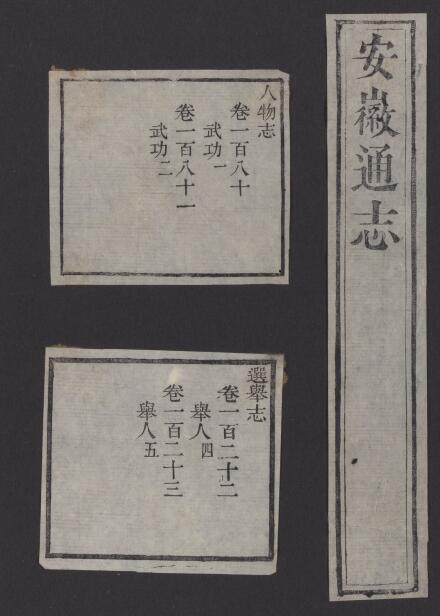 安徽通志
人物志
卷一百八十
武功一
卷一百八十一
武功二
選舉志
卷一百二十二
舉人四
卷一百二十三
舉人五